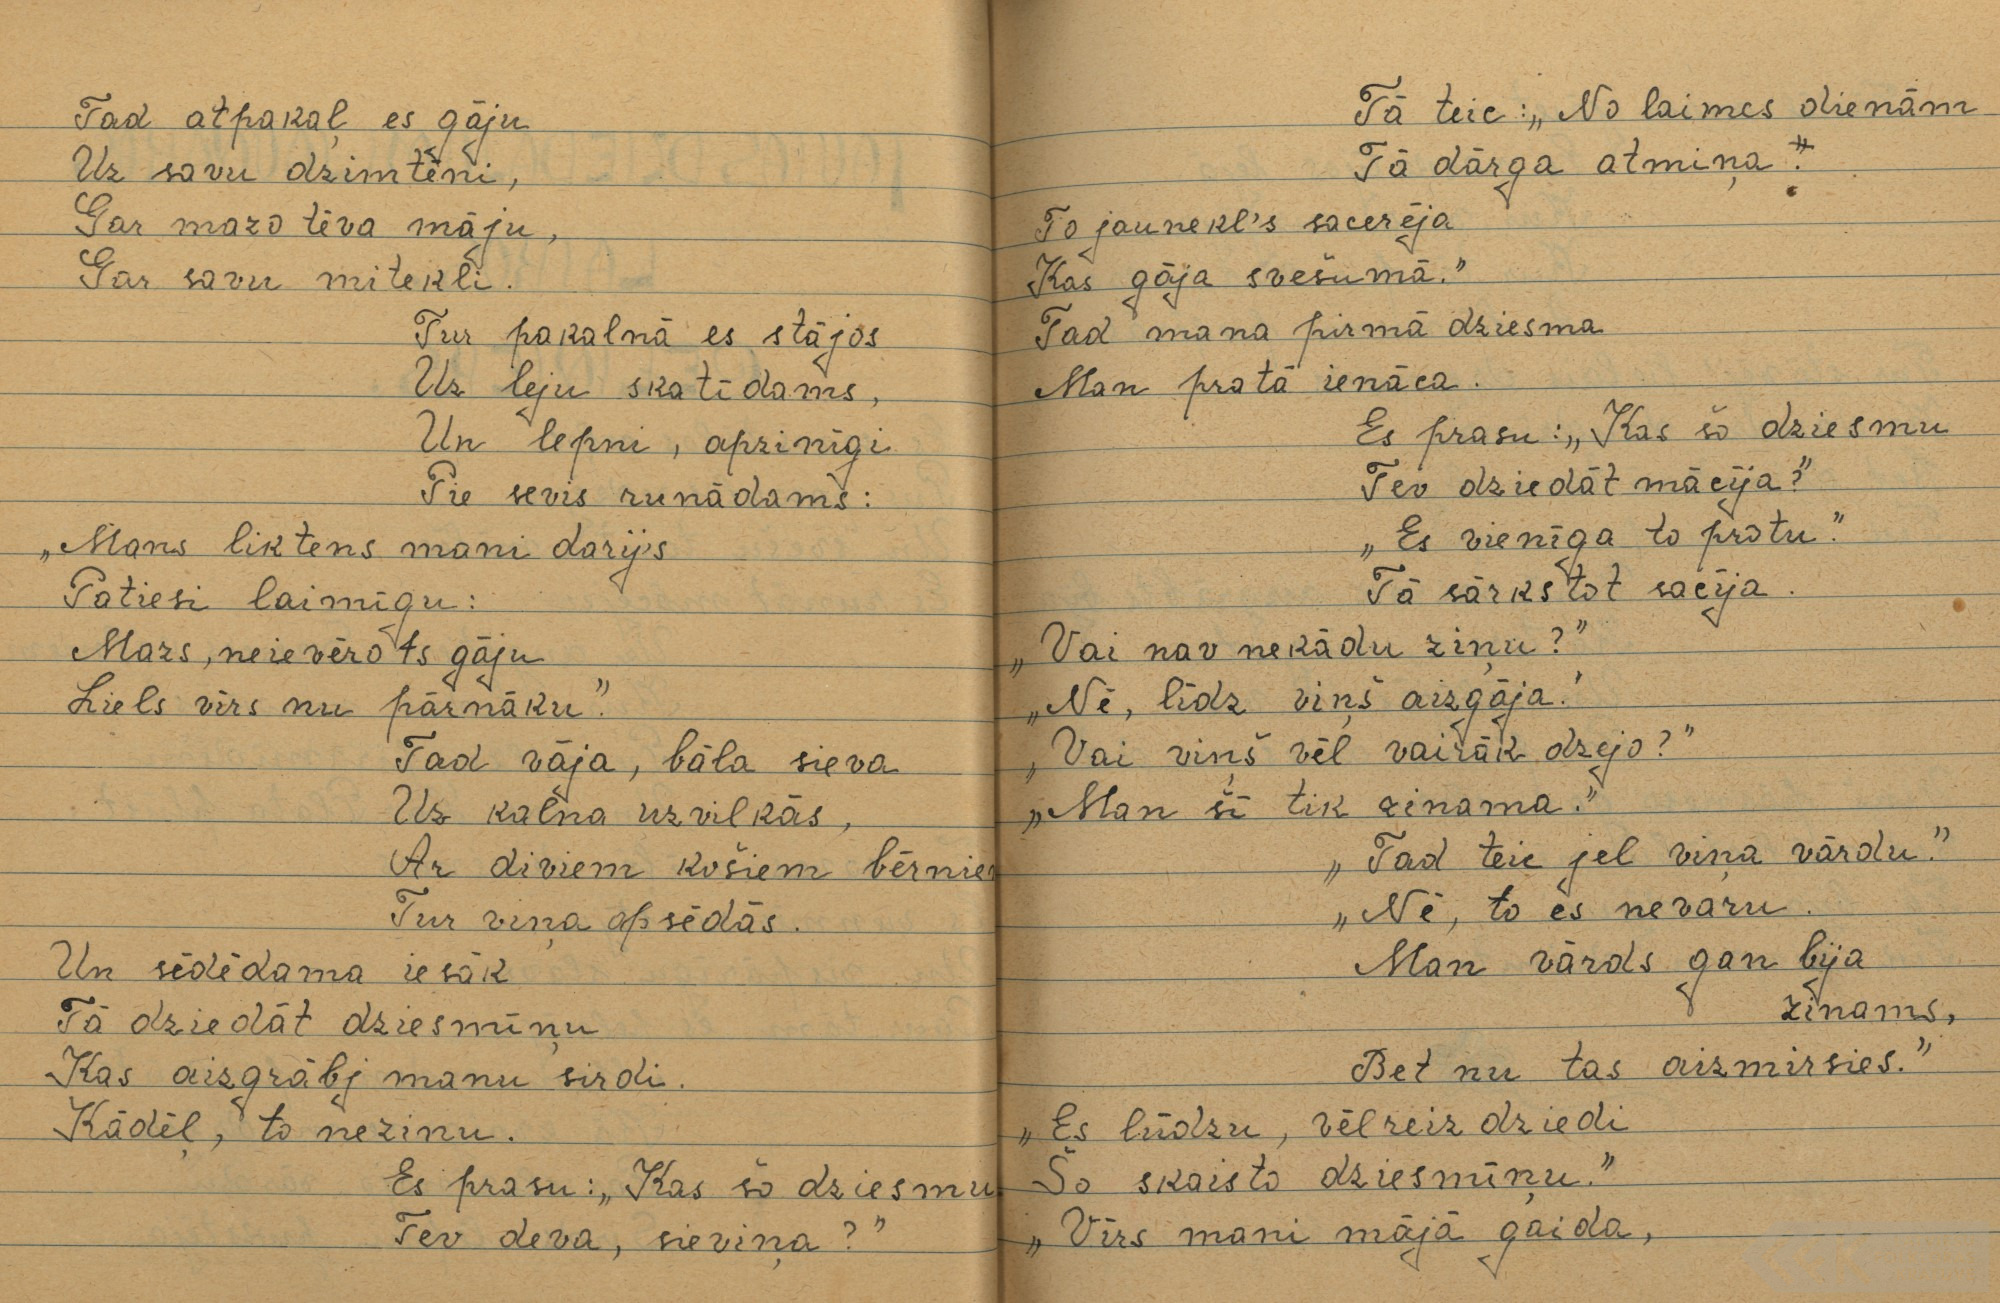 Tad atpakaļ es gāju
Uz savu dzimtēni,
Gar mazo tēva māju,
Gar savu mitekli.
Tur pakalnā es stājos
Uz leju skatīdams,
Un lepni, apzinīgi
Pie sevis runādams:
„Mans liktens mani darij's
Patiesi laimīgu:
Mazs, neievērots gāju
Liels vīrs nu pārnāku".
Tad vāja, bāla sieva
Uz kalna uzvilkās,
Ar diviem košiem bērnie
Tur viņa apsēdās.
Un sēdēdama iesāk
Tā dziedāt dziesmīņu
Kas aizgrābj manu sirdi.
Kādēļ, to nezinu.
Es prasu: „Kas šo dziesmu
Tev deva, sieviņa?"
Tā teic: „No laimes dienām
Tā dārga atmiņa".
To jaunekl's sacerēja
Kas gāja svešumā."
Tad mana pirmā dziesma
Man pratā ienāca.
Es prasu: „Kas šo dziesmu
Tev dziedāt mācīja?"
„Es vienīga to protu".
Tā sārkstot sacīja.
„Vai nav nekādu ziņu?"
„Nē, līdz viņš aizgāja.'
„Vai viņš vēl vairāk dzejo?"
„Man šī tik zinama."
„Tad teic jel viņa vārdu."
„Nē, to es nevaru.
Man vārds gan bija
zinams,
Bet nu tas aizmirsies."
„Es lūdzu, vēlreiz dziedi
Šo skaisto dziesmīņu."
„Vīrs mani mājā gaida,